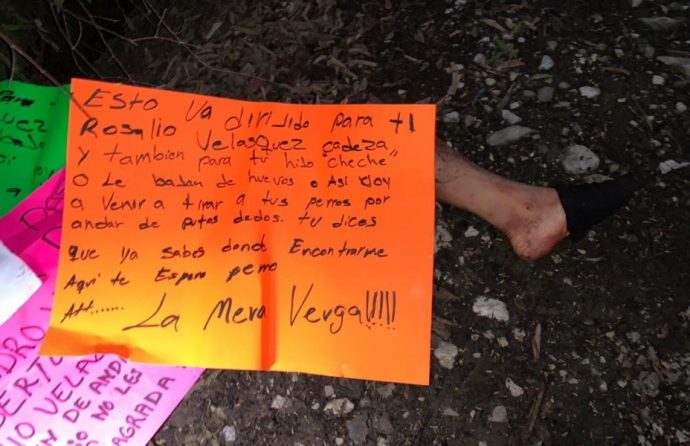 ESTO Va diriJido para ti
Rosalio Velasquez cadeza
y tambien para tu hiJo "cheche"
O Le baJan de huevos o Asi Voy
a Venir a tirar a tus perros por
andar de putos dedos. tu dices
que ya sabes donde Encontrarme
Aqui te Espero perro
Att.......
La Mera Verga!!!!!
Para
uez
DRO V
ERTO
IO VELA
EN DE AND
O NO LES
AGRADA